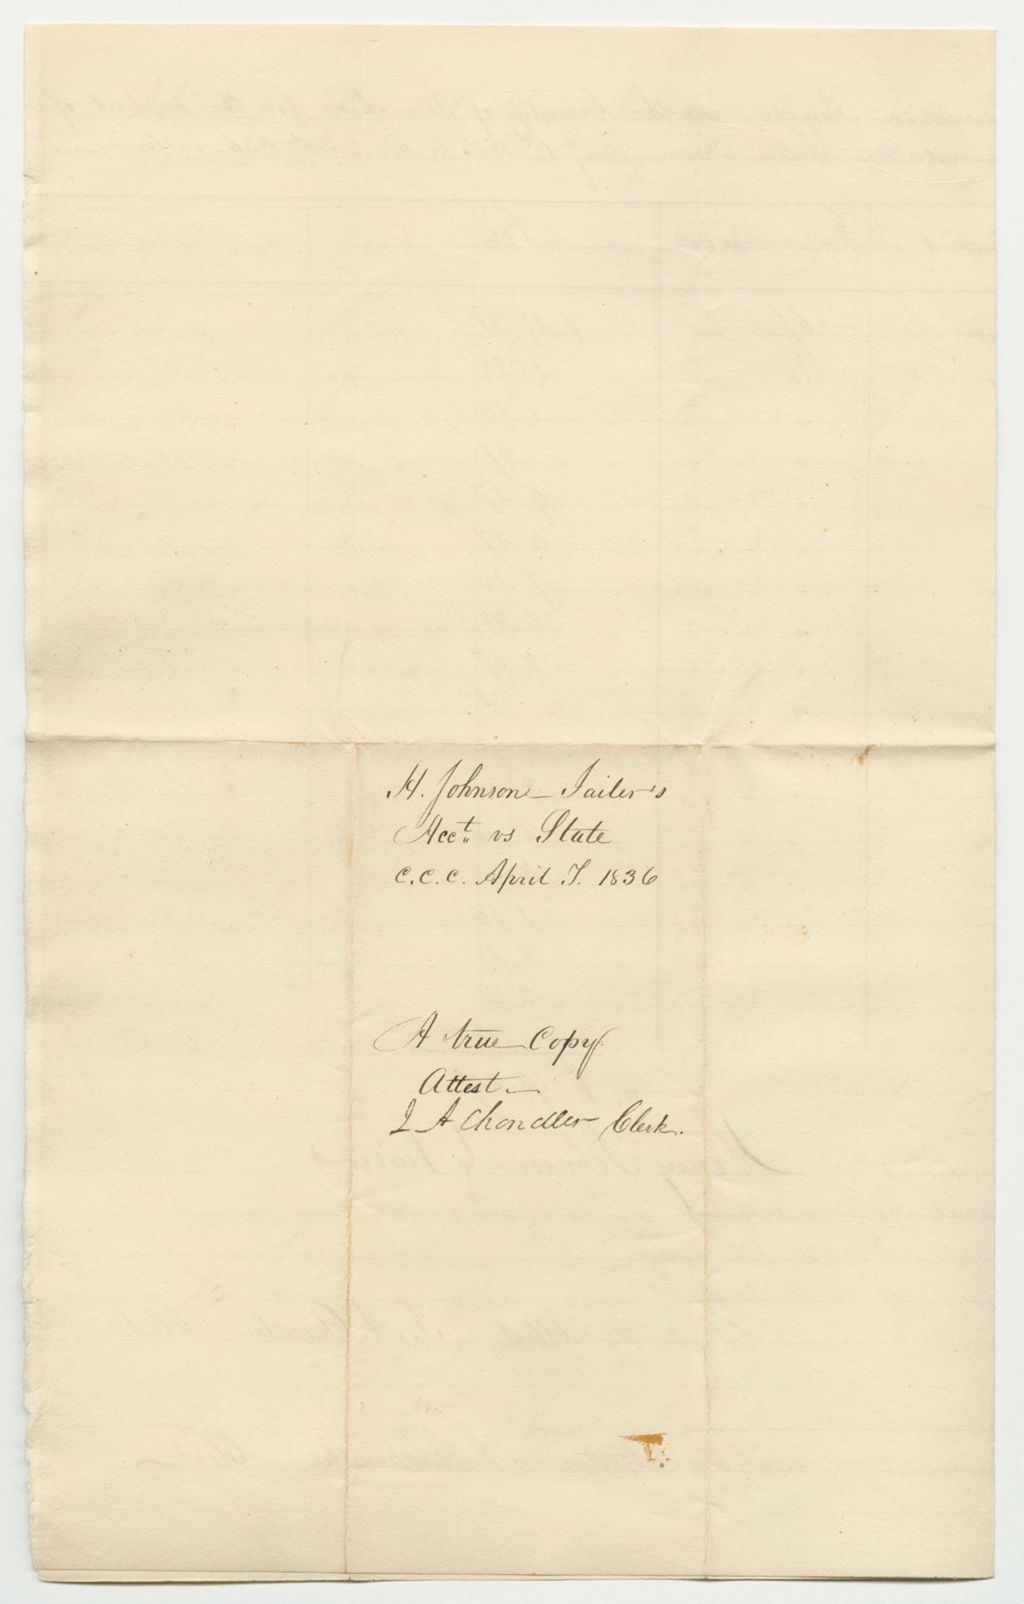 H. Johnson – Jailer's
Acct. vs State
C.C.C. April T. 1836
A true Copy.
Attest –
J A Chandler Clerk.